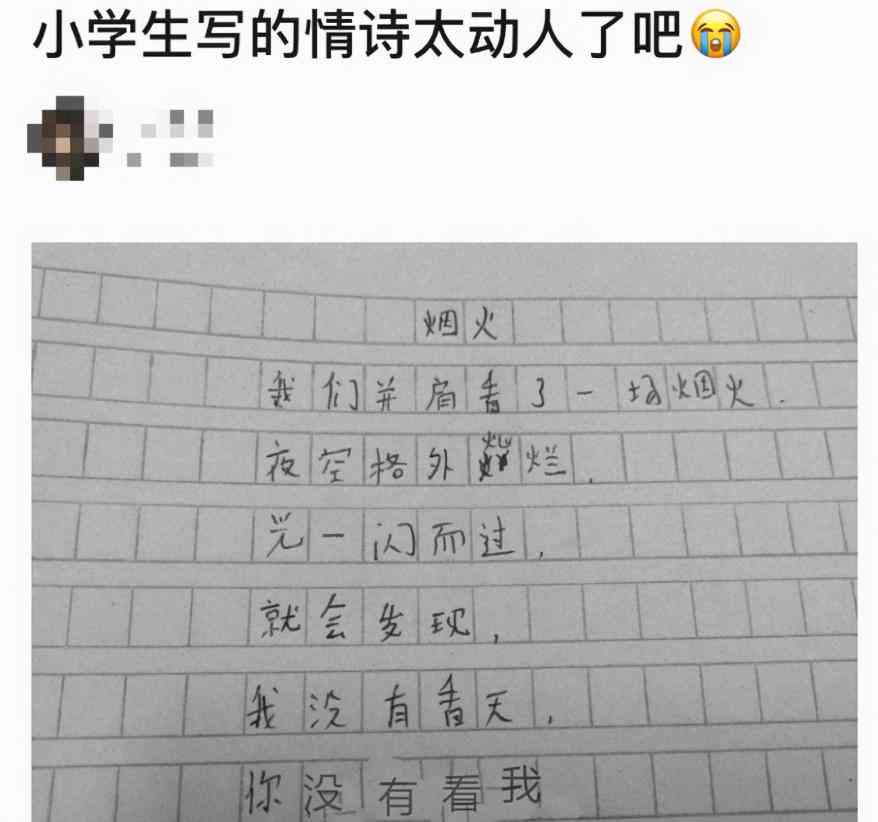 小学生写的情诗太动人了吧😭
烟火
我们并肩看了一场烟火.
夜空格外灿烂.
光一闪而过,
就会发现,
我没有看天,
你没有看我